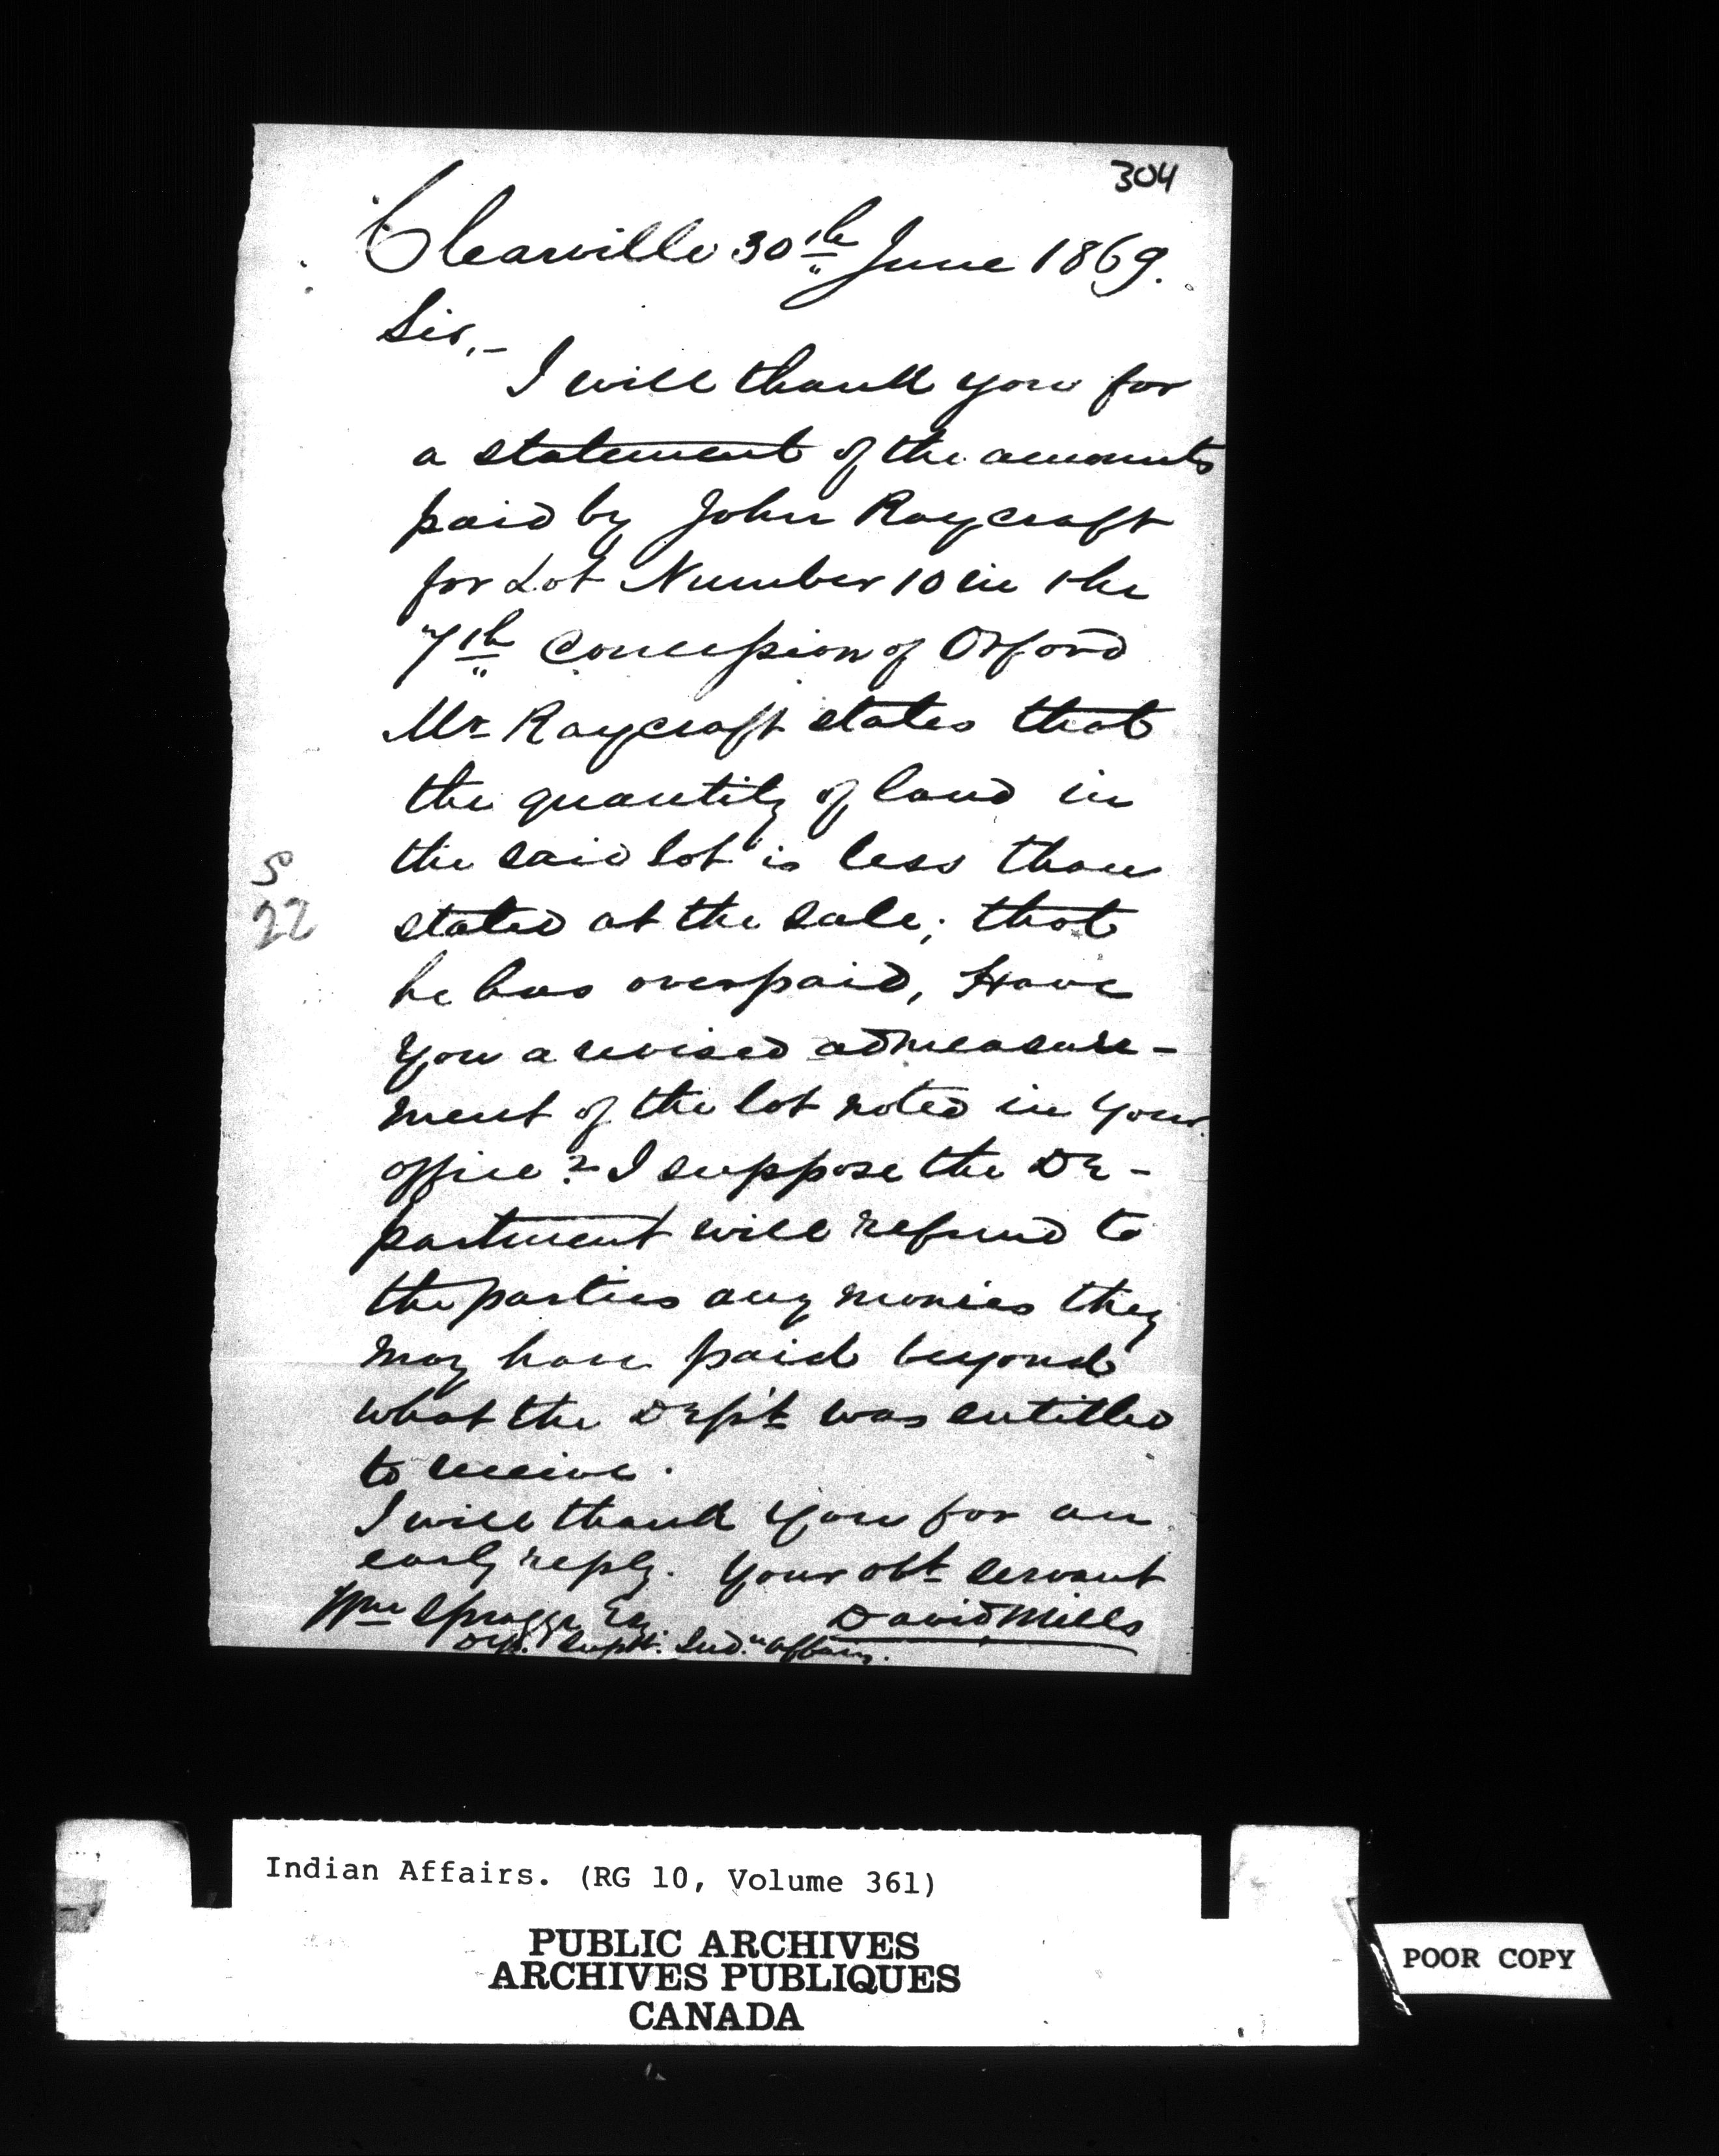 304
Clearville 30th June 1869.
Sir,-
I will thank you for
a statement of the amounts
paid by John Raycraft
for Lot Number 10 in the
7th Concession of Orford
Mr Raycraft states that
the quantity of land in
the said lot is less than
stated at the sale; that
he has overpaid, Have
you a revised admeasure-
ment of the lot noted in your
office? I suppose the De-
partment will refund to
the parties any monies they
may have paid beyond
what the Dep't was entitled
to receive.
I will thank you for an
early reply. Your obt servant
Wm Spragge Esq David Mills
Dep. Supt. Ind.n Affairs.
S
22
Indian Affairs. (RG 10, Volume 361)
PUBLIC ARCHIVES
ARCHIVES PUBLIQUES
CANADA
POOR COPY